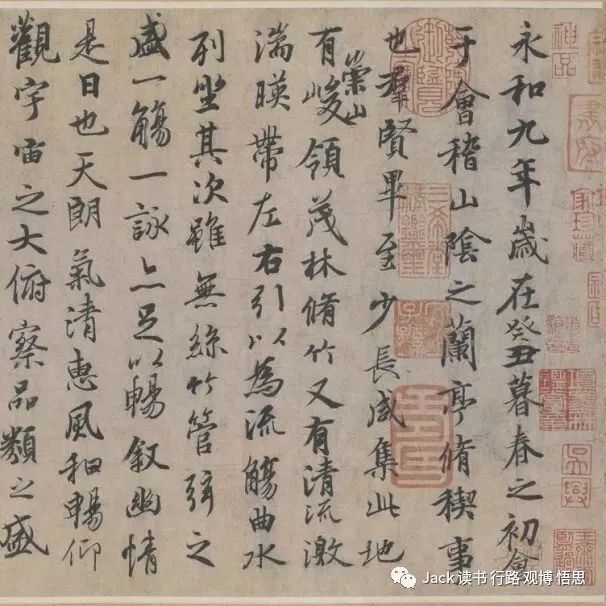 神品
永和九年歲在癸丑暮春之初會
于會稽山陰之蘭亭脩稧事
也羣賢畢至少長咸集此地
有崇山峻領茂林脩竹又有清流激
湍暎帶左右引以為流觴曲水
列坐其次雖無絲竹管弦之
盛一觴一詠亦足以暢叙幽情
是日也天朗氣清惠風和暢仰
觀宇宙之大俯察品類之盛
Jack 读书 行路 观博 悟思